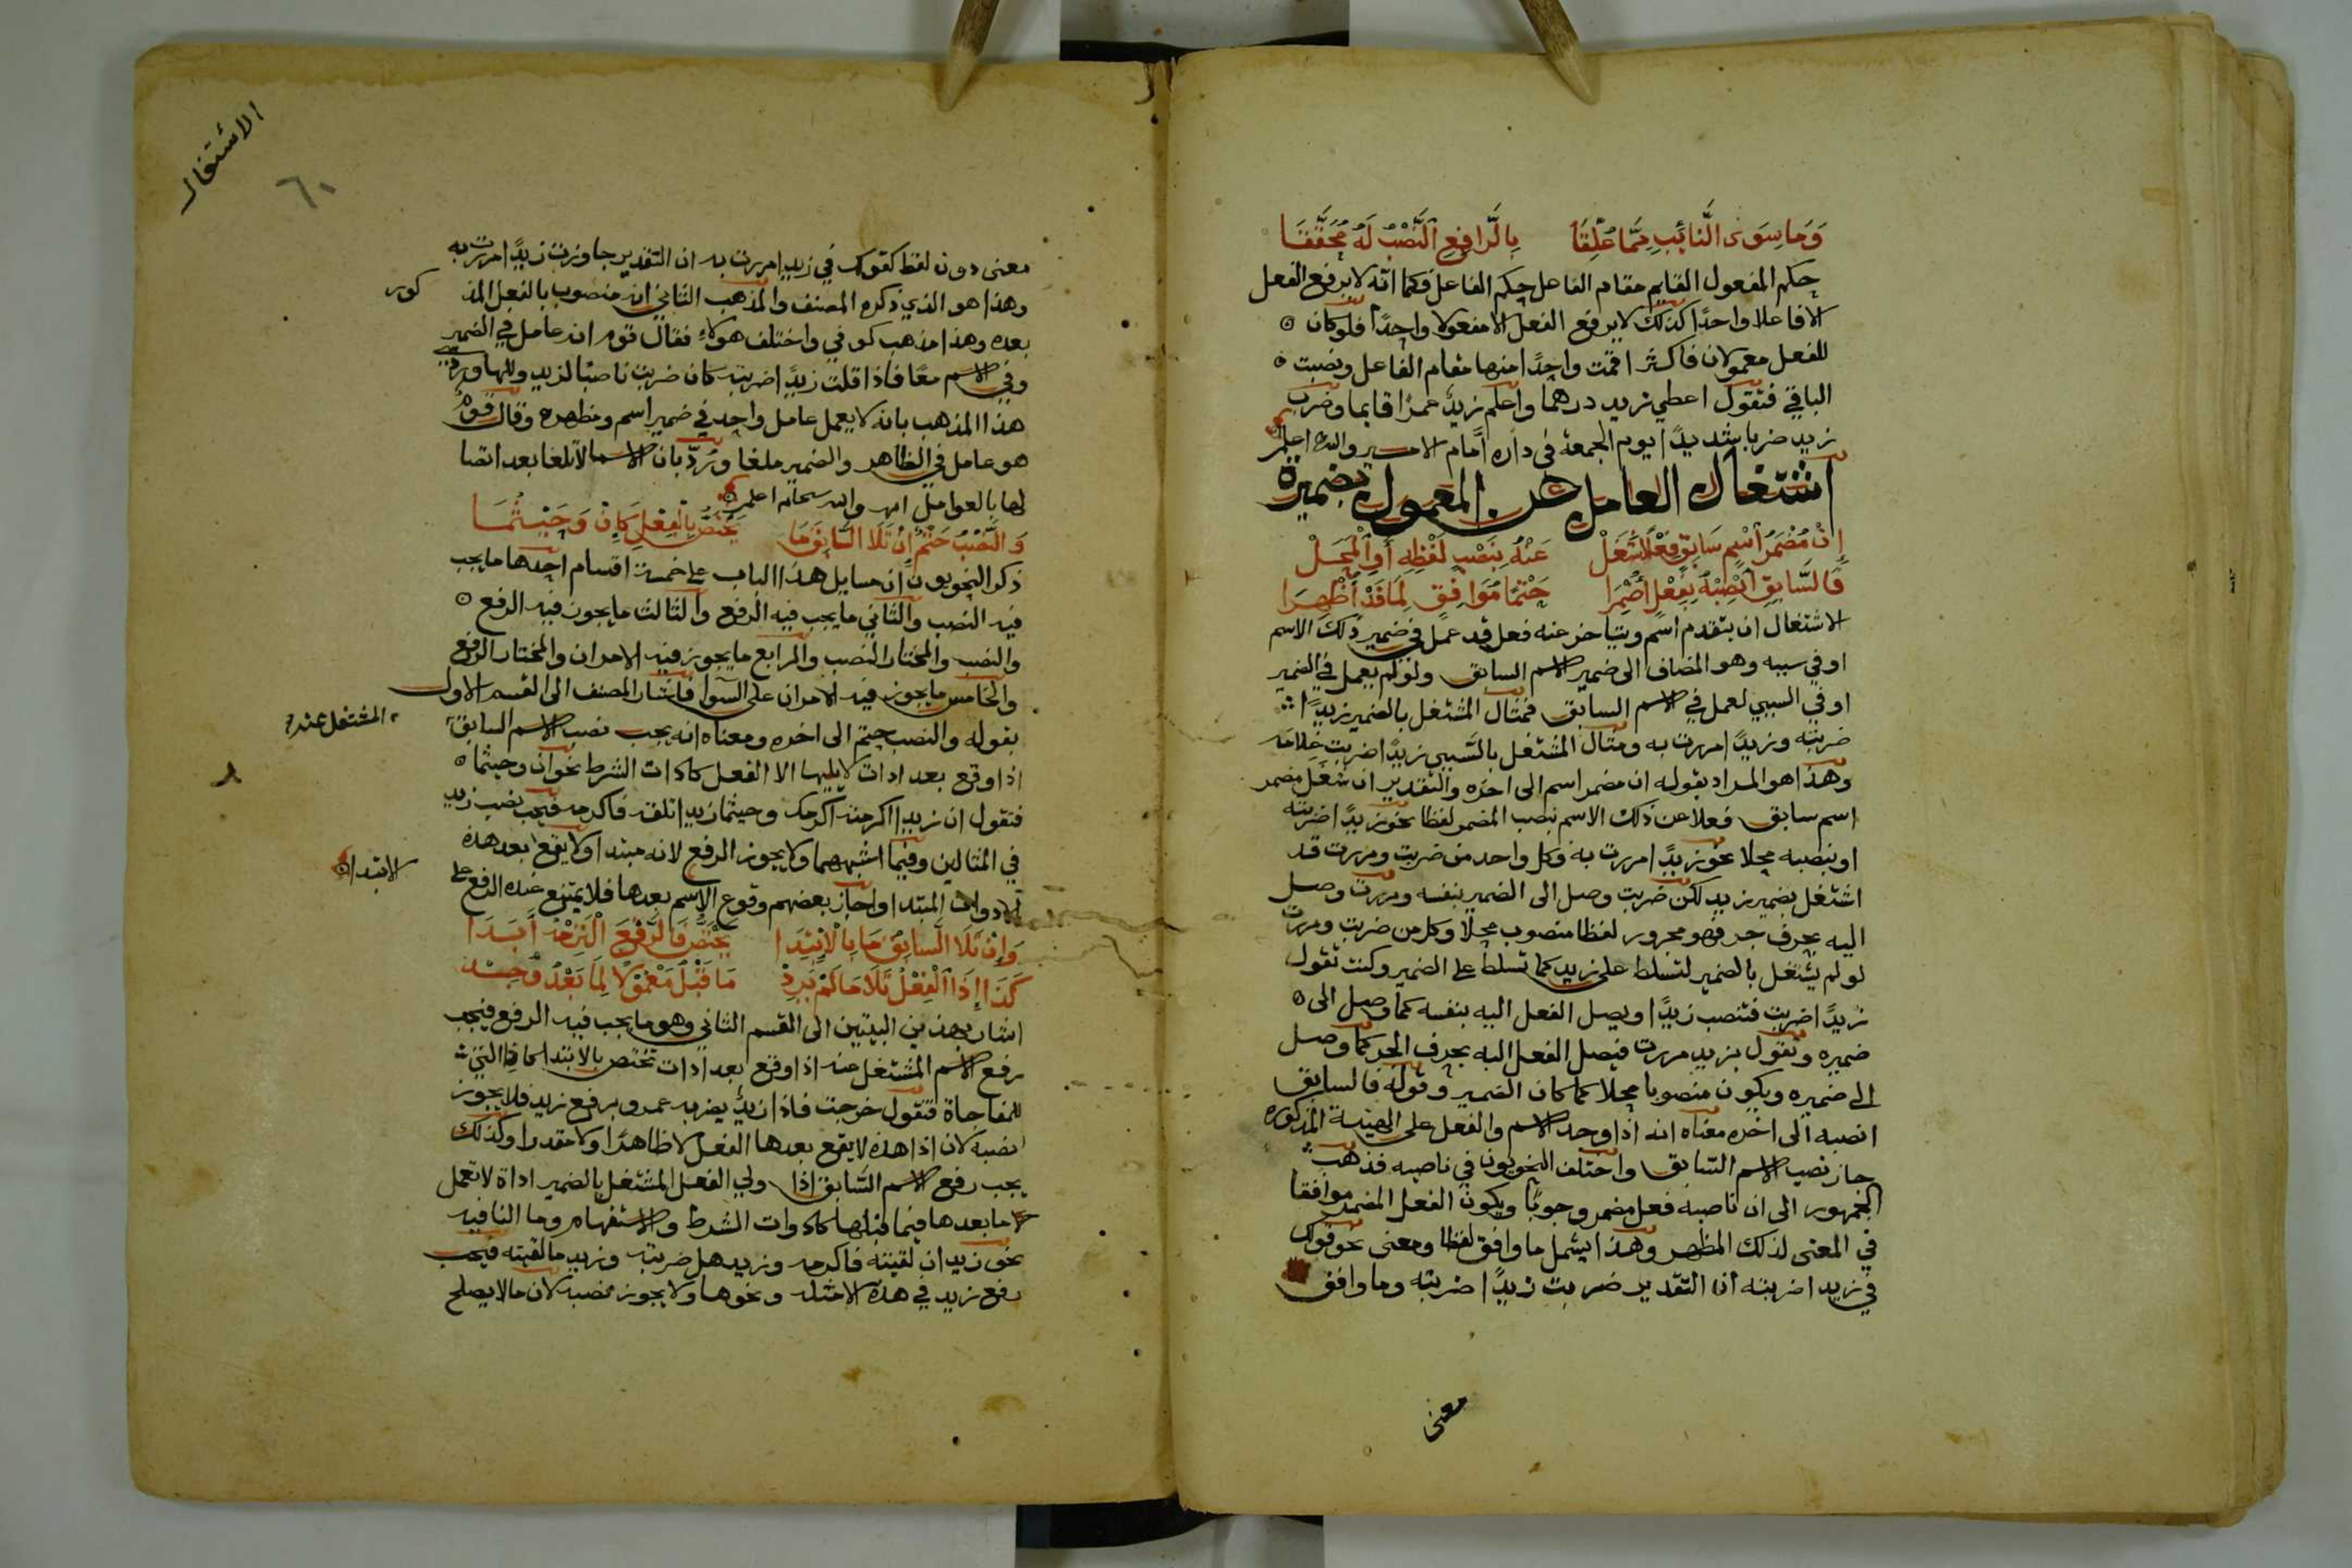 وَمَا سِوَى النَّائِبِ مِمَّا عُلِّقَا بِالرَّافِعِ النَّصْبُ لَهُ مُحَقَّقَا
حكم المفعول القايم مقام الفاعل حكم الفاعل فكما انه لا يرفع الفعل
الا فاعلا واحدًا كذلك لا يرفع الفعل الا مفعولا واحدًا فلو كان
للفعل معمولان فاكثر اقمت واحدًا منها مقام الفاعل ونصبت
الباقي فتقول اعطي زيد درهما واعلم زيدٌ عمرًا قايما وضرب
زيد ضربا شديدًا يوم الجمعة في داره امام الامير والله اعلم
اشتغال العامل عن المعمول بضميره
إِنْ مُضْمَرُ اسْمٍ سَابِقٍ فِعْلًا شَغَلْ عَنْهُ بِنَصْبِ لَفْظِهِ أَوِ الْمَحَلْ
فَالسَّابِقَ انْصِبْهُ بِفِعْلٍ أُضْمِرَا حَتْمًا مُوَافِقٍ لِمَا قَدْ أُظْهِرَا
الاشتغال ان يتقدم اسم ويتاخر عنه فعل قد عمل في ضمير ذلك الاسم
او في سببه وهو المضاف الى ضمير الاسم السابق ولو لم يعمل في الضمير
او في السببي لعمل في الاسم السابق فمثال المشتغل بالضمير زيدًا
ضربته وزيدًا مررت به ومثال المشتغل بالسببي زيدًا ضربت غلامه
وهذا هو المراد بقوله ان مضمر اسم الى اخره والتقدير ان شغل مضمر
اسم سابق فعلا عن ذلك الاسم بنصب المضمر لفظا نحو زيدًا ضربته
او بنصبه محلا نحو زيدًا مررت به فكل واحد من ضربت ومررت قد
اشتغل بضمير زيد لكن ضربت وصل الى الضمير بنفسه ومررت وصل
اليه بحرف جر فهو مجرور لفظا منصوب محلا وكل من ضربت ومررت
لو لم يشتغل بالضمير لتسلط على زيد كما تسلط على الضمير وكنت تقول
زيدًا ضربت فتنصب زيدًا ويصل الفعل اليه بنفسه كما وصل الى
ضميره وتقول بزيد مررت فيصل الفعل اليه بحرف الجر كما وصل
الى ضميره ويكون منصوبا محلا كما كان الضمير وقوله فالسابق
انصبه الى اخره معناه انه اذا وجد الاسم والفعل على الهيئة المذكوره
جاز نصب الاسم السابق واختلف النحويون في ناصبه فذهب
الجمهور الى ان ناصبه فعل مضمر وجوبًا ويكون الفعل المضمر موافقا
في المعنى لذلك المظهر وهذا يشمل ما وافق لفظا ومعنى نحو قولك
في زيدا ضربته ان التقدير ضربت زيدًا ضربته وما وافق
معنى
الاشتغال
٦١
معنى دون لفظ كقولك في زيدا مررت به ان التقدير جاوزت زيدًا مررت به
وهذا هو الذي ذكره المصنف والمذهب الثاني انه منصوب بالفعل المذ
كور
بعده وهذا مذهب كوفي واختلف هولاء فقال قوم انه عامل في الضمير
وفي الاسم معًا فاذا قلت زيدًا ضربته كان ضربت ناصبًا لزيد وللهاء ورد
هذا المذهب بانه لا يعمل عامل واحد في ضمير اسم ومظهره وقال قوم
هو عامل في الظاهر والضمير ملغا ورُدّ بان الاسما لا تلغا بعد اتصا
لها بالعوامل اهـ والله سبحانه اعلم
وَالنَّصْبُ حَتْمٌ إِنْ تَلَا السَّابِقُ مَا يَخْتَصُّ بِالْفِعْلِ كَإِنْ وَحَيْثُمَا
ذكر النحويون ان مسايل هذا الباب على خمسة اقسام احدها ما يجب
فيه النصب والثاني ما يجب فيه الرفع والثالث ما يجوز فيه الرفع
والنصب والمختار النصب والرابع ما يجوز فيه الامران والمختار الرفع
والخامس ما يجوز فيه الامران على السوا فاشار المصنف الى القسم الاول
بقوله والنصب حتم الى اخره ومعناه انه يجب نصب الاسم السابق
المشتغل عنه
اذا وقع بعد ادات لا يليها الا الفعل كادات الشرط نحو ان وحيثما
فتقول ان زيدا اكرمته اكرمك وحيثما زيدا تلقه فاكرمه فيجب نصب زيد
في المثالين وفيما اشبههما ولا يجوز الرفع لانه مبتدا ولا يقع بعد هذه
الادوات المبتدا واجاز بعضهم وقوع الاسم بعدها فلا يمتنع عنده الرفع على
الابتداء
وَإِنْ تَلَا السَّابِقُ مَا بِالْابْتِدَا يَخْتَصُّ فَالرَّفْعَ الْتَزِمْهُ أَبَدَا
كَذَا إِذَا الْفِعْلُ تَلَا مَا لَمْ يَرِدْ مَا قَبْلُ مَعْمُولًا لِمَا بَعْدُ وُجِدْ
اشار بهذين البيتين الى القسم الثاني وهو ما يجب فيه الرفع فيجب
رفع الاسم المشتغل عنه اذا وقع بعد ادات تختص بالابتدا كاذا التي
للمفاجاة فتقول خرجت فاذا زيدٌ يضربه عمرو برفع زيد فلا يجوز
نصبه لان اذا هذه لا يقع بعدها الفعل لا ظاهرًا ولا مقدرا وكذلك
يجب رفع الاسم السابق اذا ولي الفعل المشتغل بالضمير اداة لا تعمل
ما بعدها فيما قبلها كادوات الشرط والاستفهام وما النافيه
نحو زيد ان لقيته فاكرمه وزيد هل ضربته وزيد ما لقيته فيجب
رفع زيد في هذه الامثله ونحوها ولا يجوز نصبه لان ما لا يصلح